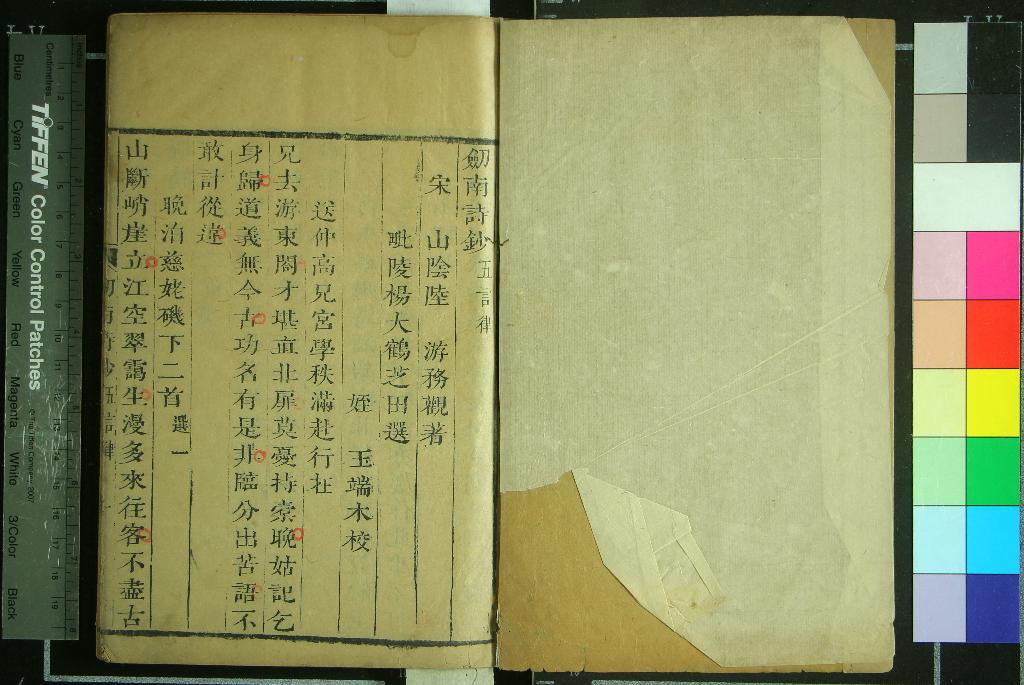 劔南詩鈔 五言律
宋 山陰陸 游務觀著
毗陵楊大鶴芝田選
姪 玉端木校
送仲高兄宮學秩滿赴行在
兄去游東閣才堪直北扉莫憂持橐晚姑記乞
身歸道義無今古功名有是非臨分出苦語不
敢計從違
晚泊慈姥磯下二首 選一
山斷峭崖立江空翠靄生漫多來往客不盡古
劔南詩鈔 五言律
TIFFEN Color Control Patches
© The Tiffen Company, 2007
Centimetres
Inches
Blue Cyan Green Yellow Red Magenta White 3/Color Black